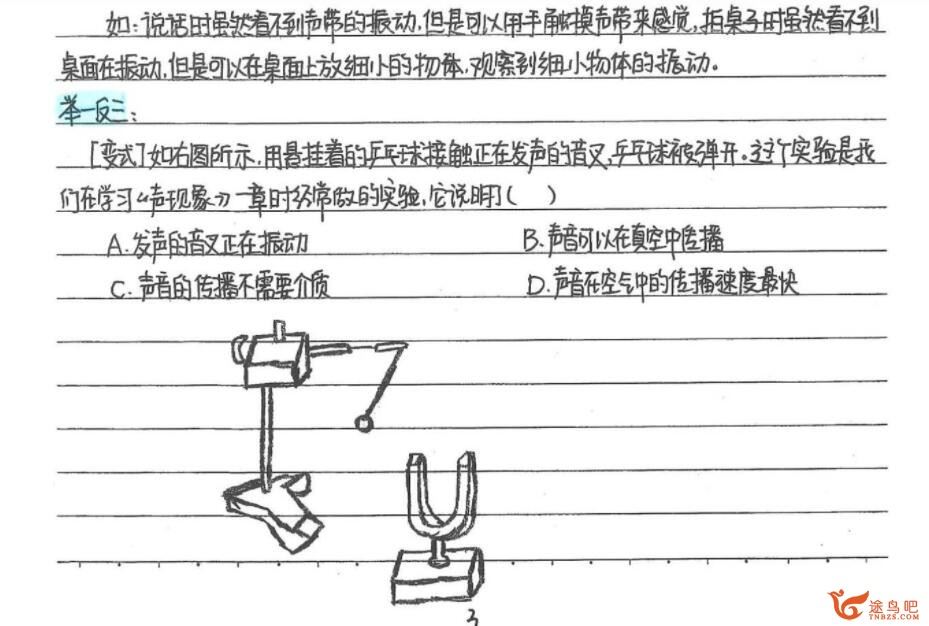 如：说话时虽然看不到声带的振动，但是可以用手触摸声带来感觉，拍桌子时虽然看不到
桌面在振动，但是可以在桌面上放细小的物体，观察到细小物体的振动。
举一反三：
[变式]如右图所示，用悬挂着的乒乓球接触正在发声的音叉，乒乓球被弹开。这个实验是我
们在学习《声现象》一章时经常做的实验，它说明了(　)
A.发声的音叉正在振动　B.声音可以在真空中传播
C.声音的传播不需要介质　D.声音在空气中的传播速度最快
3
途鸟吧
TNBZS.COM